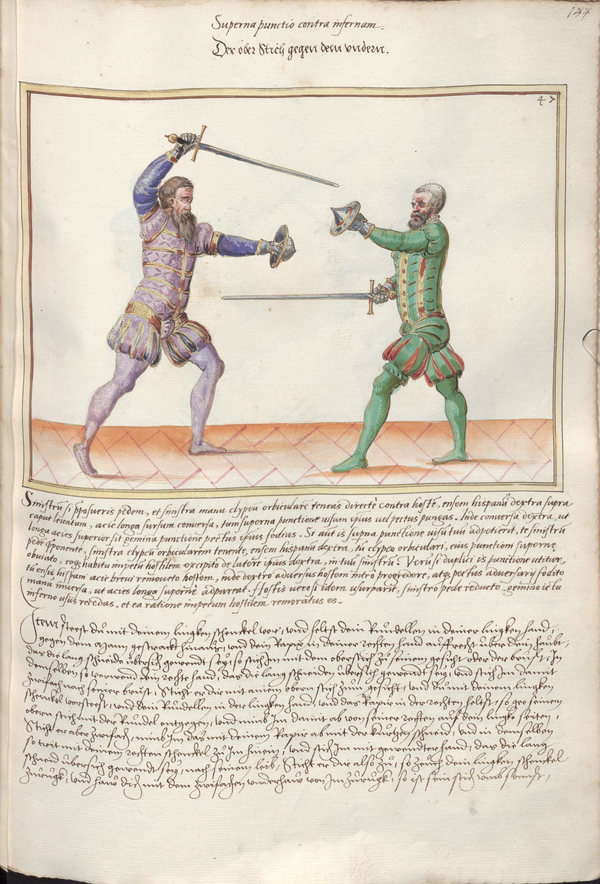 147
Superna punctio contra infernam.
Der ober Stich gegen dem undern.
47
Sinistrum si proposueris pedem, et sinistra manu clypeum orbicularem teneas directe contra hostem, ensem hispanum dextra supra
caput levatum, acie longa sursum conversa, tum superna punctione visum ipsius vel pectus pungas. Inde conversa dextra, ut
longa acies superior sit gemina punctione pectus ipsius fodias. Si aut is superna punctione visum tuum adpetierit, te sinistrum
pede proponente, sinistra clypeum orbicularem tenente, ensem hispanum dextra, tu clypeo orbiculari, eius punctioni superne
obviato, eoque habitu impetum hostilem excipito de latere ipsius dextro, in tuum sinistrum. Verum si duplici is punctione utitur,
tu ense hispano acie brevi removeto hostem, inde dextro adversus hostem intro progredere, atque pectus adversarii fodito
manu inversa, ut acies longa superne adpareat. Hostis vero si idem usurparit, sinistro pede reducto, gemino ictu
inferno usus recedas, et ea ratione impetum hostilem remoratus es.
Item steest du mit deinem lingken schenckel vor, und heltst dein Rundellen in deiner lingken hand,
gegen dem Mann gestrackt hinaus, und dein Rapier in deiner rechten hand auffrecht uber dem haubt,
das die lang schneide ubersich gewendt seÿ, so stich Im mit dem oberstich zu seinem gesicht oder der brust, In
demselben so verwend dein recht hand, das die lang schneiden ubersich gewendt seÿ, und stich Im damit
zwifach nach seiner brust, Sticht er dir mit ainem obern stich zum gesicht, und du mit deinem lingken
schenckel vorsteest, und dein Rundellen in der lingken hand, und das Rapier in der rechten heltst, so gee seinem
obern stich mit der Rundel entgegen, und nimb Im damit ab von seiner rechten auf dein lingke seiten,
Sticht er aber zwifach, nimb Im das mit deinem Rapier ab mit der kurtzen schneid, und in demselben
so trit mit deinem rechten schenckel zu Im hinein, und stich Im mit gewendter hand, das die lang
schneid ubersich gewendt seÿ, nach seinem leib, Sticht er dir also zu, so zeuch dein lingken schenckel
zurugk, und haw dich mit dem zwifachen underhaw von Im zurugk, so ist sein stich umb sunst,